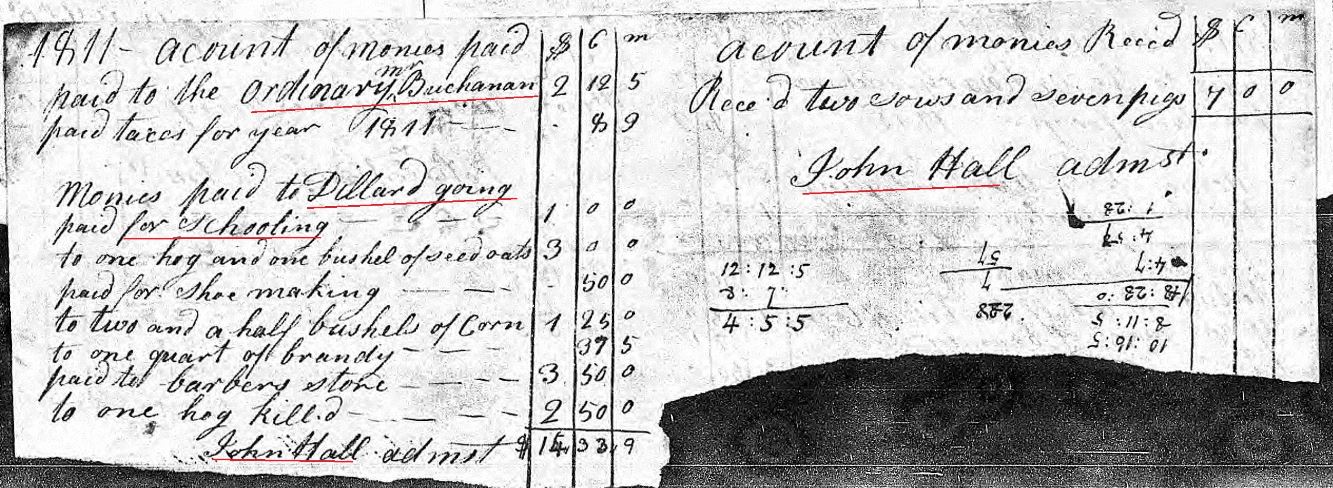 1811 - acount of monies paid $ C m
paid to the ordinary mr. Buchanan 2 12 5
paid taxes for year 1811 - - - 8 9
Monies paid to Dillard going
paid for schooling - - - 1 0 0
to one hog and one bushel of seed oats 3 0 0
paid for shoe making - - - 50 0
to two and a half bushels of Corn 1 25 0
to one quart of brandy - - - 37 5
paid to barbers store - - - 3 50 0
to one hog kill.d - - - - 2 50 0
John Hall admst $ 14 33 9
acount of monies Rece'd $ C m
Rece'd two sows and seven pigs 7 0 0
John Hall admst.
12:12:5
8: 7
4:5:5
10:16:5
8:11:5
288
57